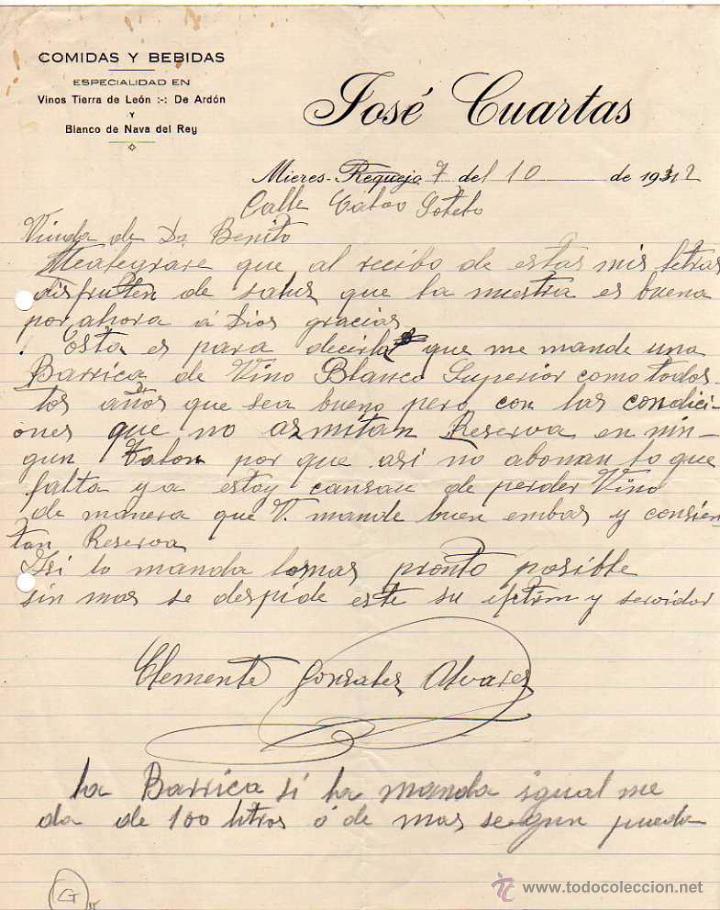 COMIDAS Y BEBIDAS
ESPECIALIDAD EN
Vinos Tierra de León :-: De Ardón
Y
Blanco de Nava del Rey
José Cuartas
Mieres-Requejo 7 del 10 de 1942
Calle Calvo Sotelo
Viuda de Dn Benito
Mealegrare que al recibo de estas mis letras
disfruten de salus que la nuestra es buena
por ahora á Dios gracias
Esta es para decirla que me mande una
Barrica de Vino Blanco Superior como todos
los años que sea bueno pero con las condici-
ones que no asmitan Reserva en nin-
gun talon por que asi no abonan lo que
falta y a estoy cansau de perder Vino
de manera que V. mande buen embas y consien
tan Reserva
I si lo manda lomas pronto posible
sin mas se despide este su y servidor
Clemente Gonsales Alvares
la Barrica si la manda igual me
da de 100 litros o de mas segun pueda
G
www.todocoleccion.net